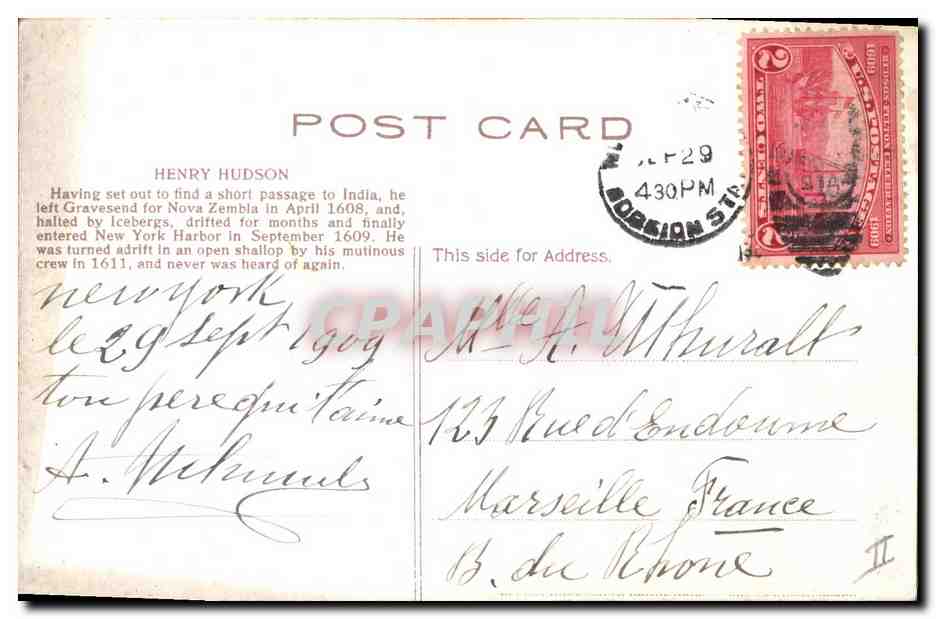 POST CARD
HENRY HUDSON
Having set out to find a short passage to India, he
left Gravesend for Nova Zembla in April 1608, and,
halted by Icebergs, drifted for months and finally
entered New York Harbor in September 1609. He
was turned adrift in an open shallop by his mutinous
crew in 1611, and never was heard of again.
This side for Address.
SEP 29
430 PM
HUDSON-FULTON CELEBRATION
1609
1909
U.S. POSTAGE
2 TWO CENTS 2
STA
newyork
le 29 sept 1909
ton pere qui t'aime
A.
Mlle A.
123 Rue d'Endoume
Marseille France
B. du Rhone
II
CPAPHIL